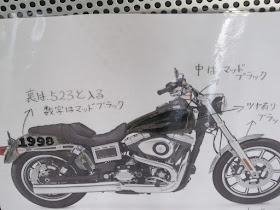 中はマッド
ブラック
裏は523と入る
数字はマッドブラック
ツヤ有り
ブラッ
1998